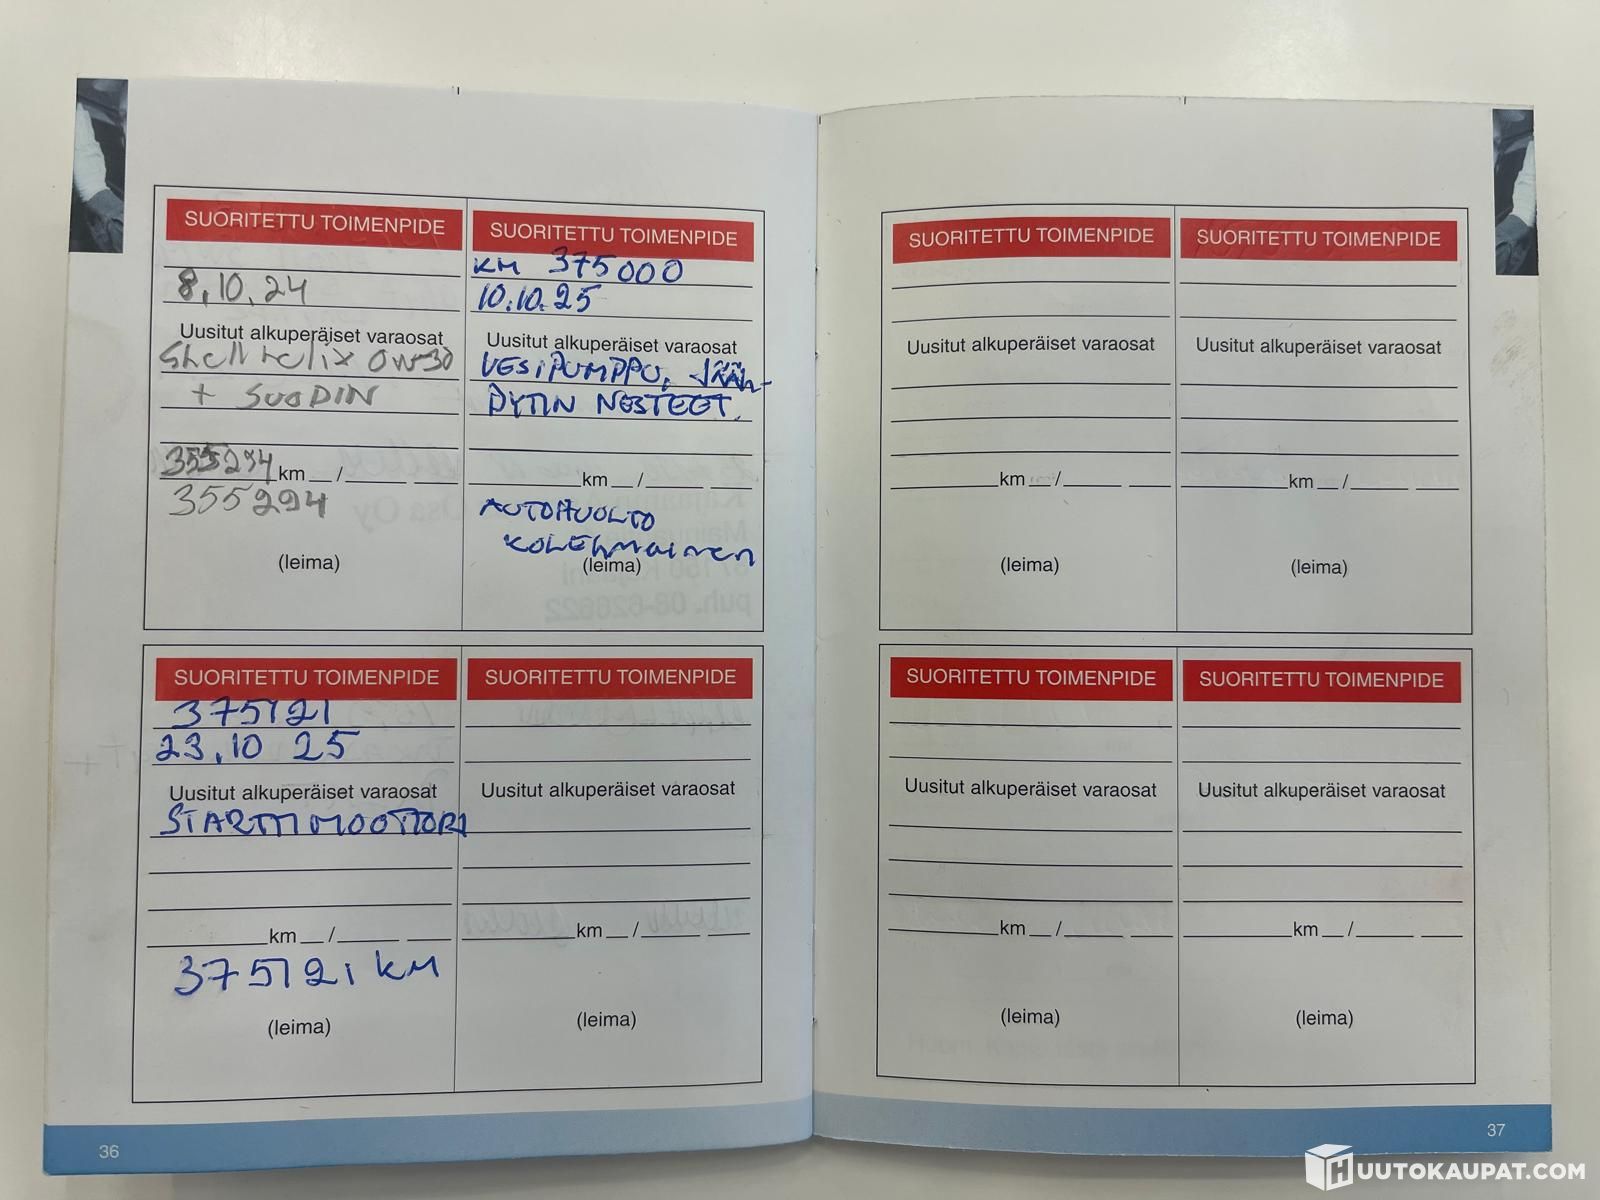 SUORITETTU TOIMENPIDE
8.10.24
Uusitut alkuperäiset varaosat
Shell helix 0W30
+ SUODIN
355294 km __ / ____ ___
355294
(leima)
SUORITETTU TOIMENPIDE
KM 375000
10.10.25
Uusitut alkuperäiset varaosat
VESIPUMPPU, JÄÄH-
DYTIN NESTEET.
km __ / ____ ___
AUTOHUOLTO
KOLEHMAINEN
(leima)
SUORITETTU TOIMENPIDE
375121
23.10 25
Uusitut alkuperäiset varaosat
STARTTIMOOTTORI
km __ / ____ ___
375121 KM
(leima)
SUORITETTU TOIMENPIDE
Uusitut alkuperäiset varaosat
km __ / ____ ___
(leima)
36
SUORITETTU TOIMENPIDE
Uusitut alkuperäiset varaosat
km __ / ____ ___
(leima)
SUORITETTU TOIMENPIDE
Uusitut alkuperäiset varaosat
km __ / ____ ___
(leima)
SUORITETTU TOIMENPIDE
Uusitut alkuperäiset varaosat
km __ / ____ ___
(leima)
SUORITETTU TOIMENPIDE
Uusitut alkuperäiset varaosat
km __ / ____ ___
(leima)
37
HUUTOKAUPAT.COM